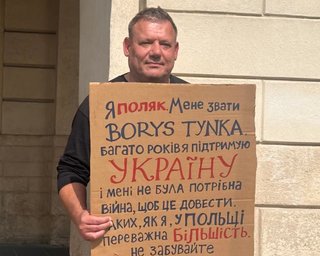 Я ПОЛЯК. Мене звати
BORYS TYNKA.
БАГАТО РОКІВ Я ПІДТРИМУЮ
УКРАЇНУ
І МЕНІ НЕ БУЛА ПОТРІБНА
ВІЙНА, ЩОБ ЦЕ ДОВЕСТИ.
ТАКИХ, ЯК Я, У ПОЛЬЩІ
ПЕРЕВАЖНА БІЛЬШІСТЬ.
НЕ ЗАБУВАЙТЕ